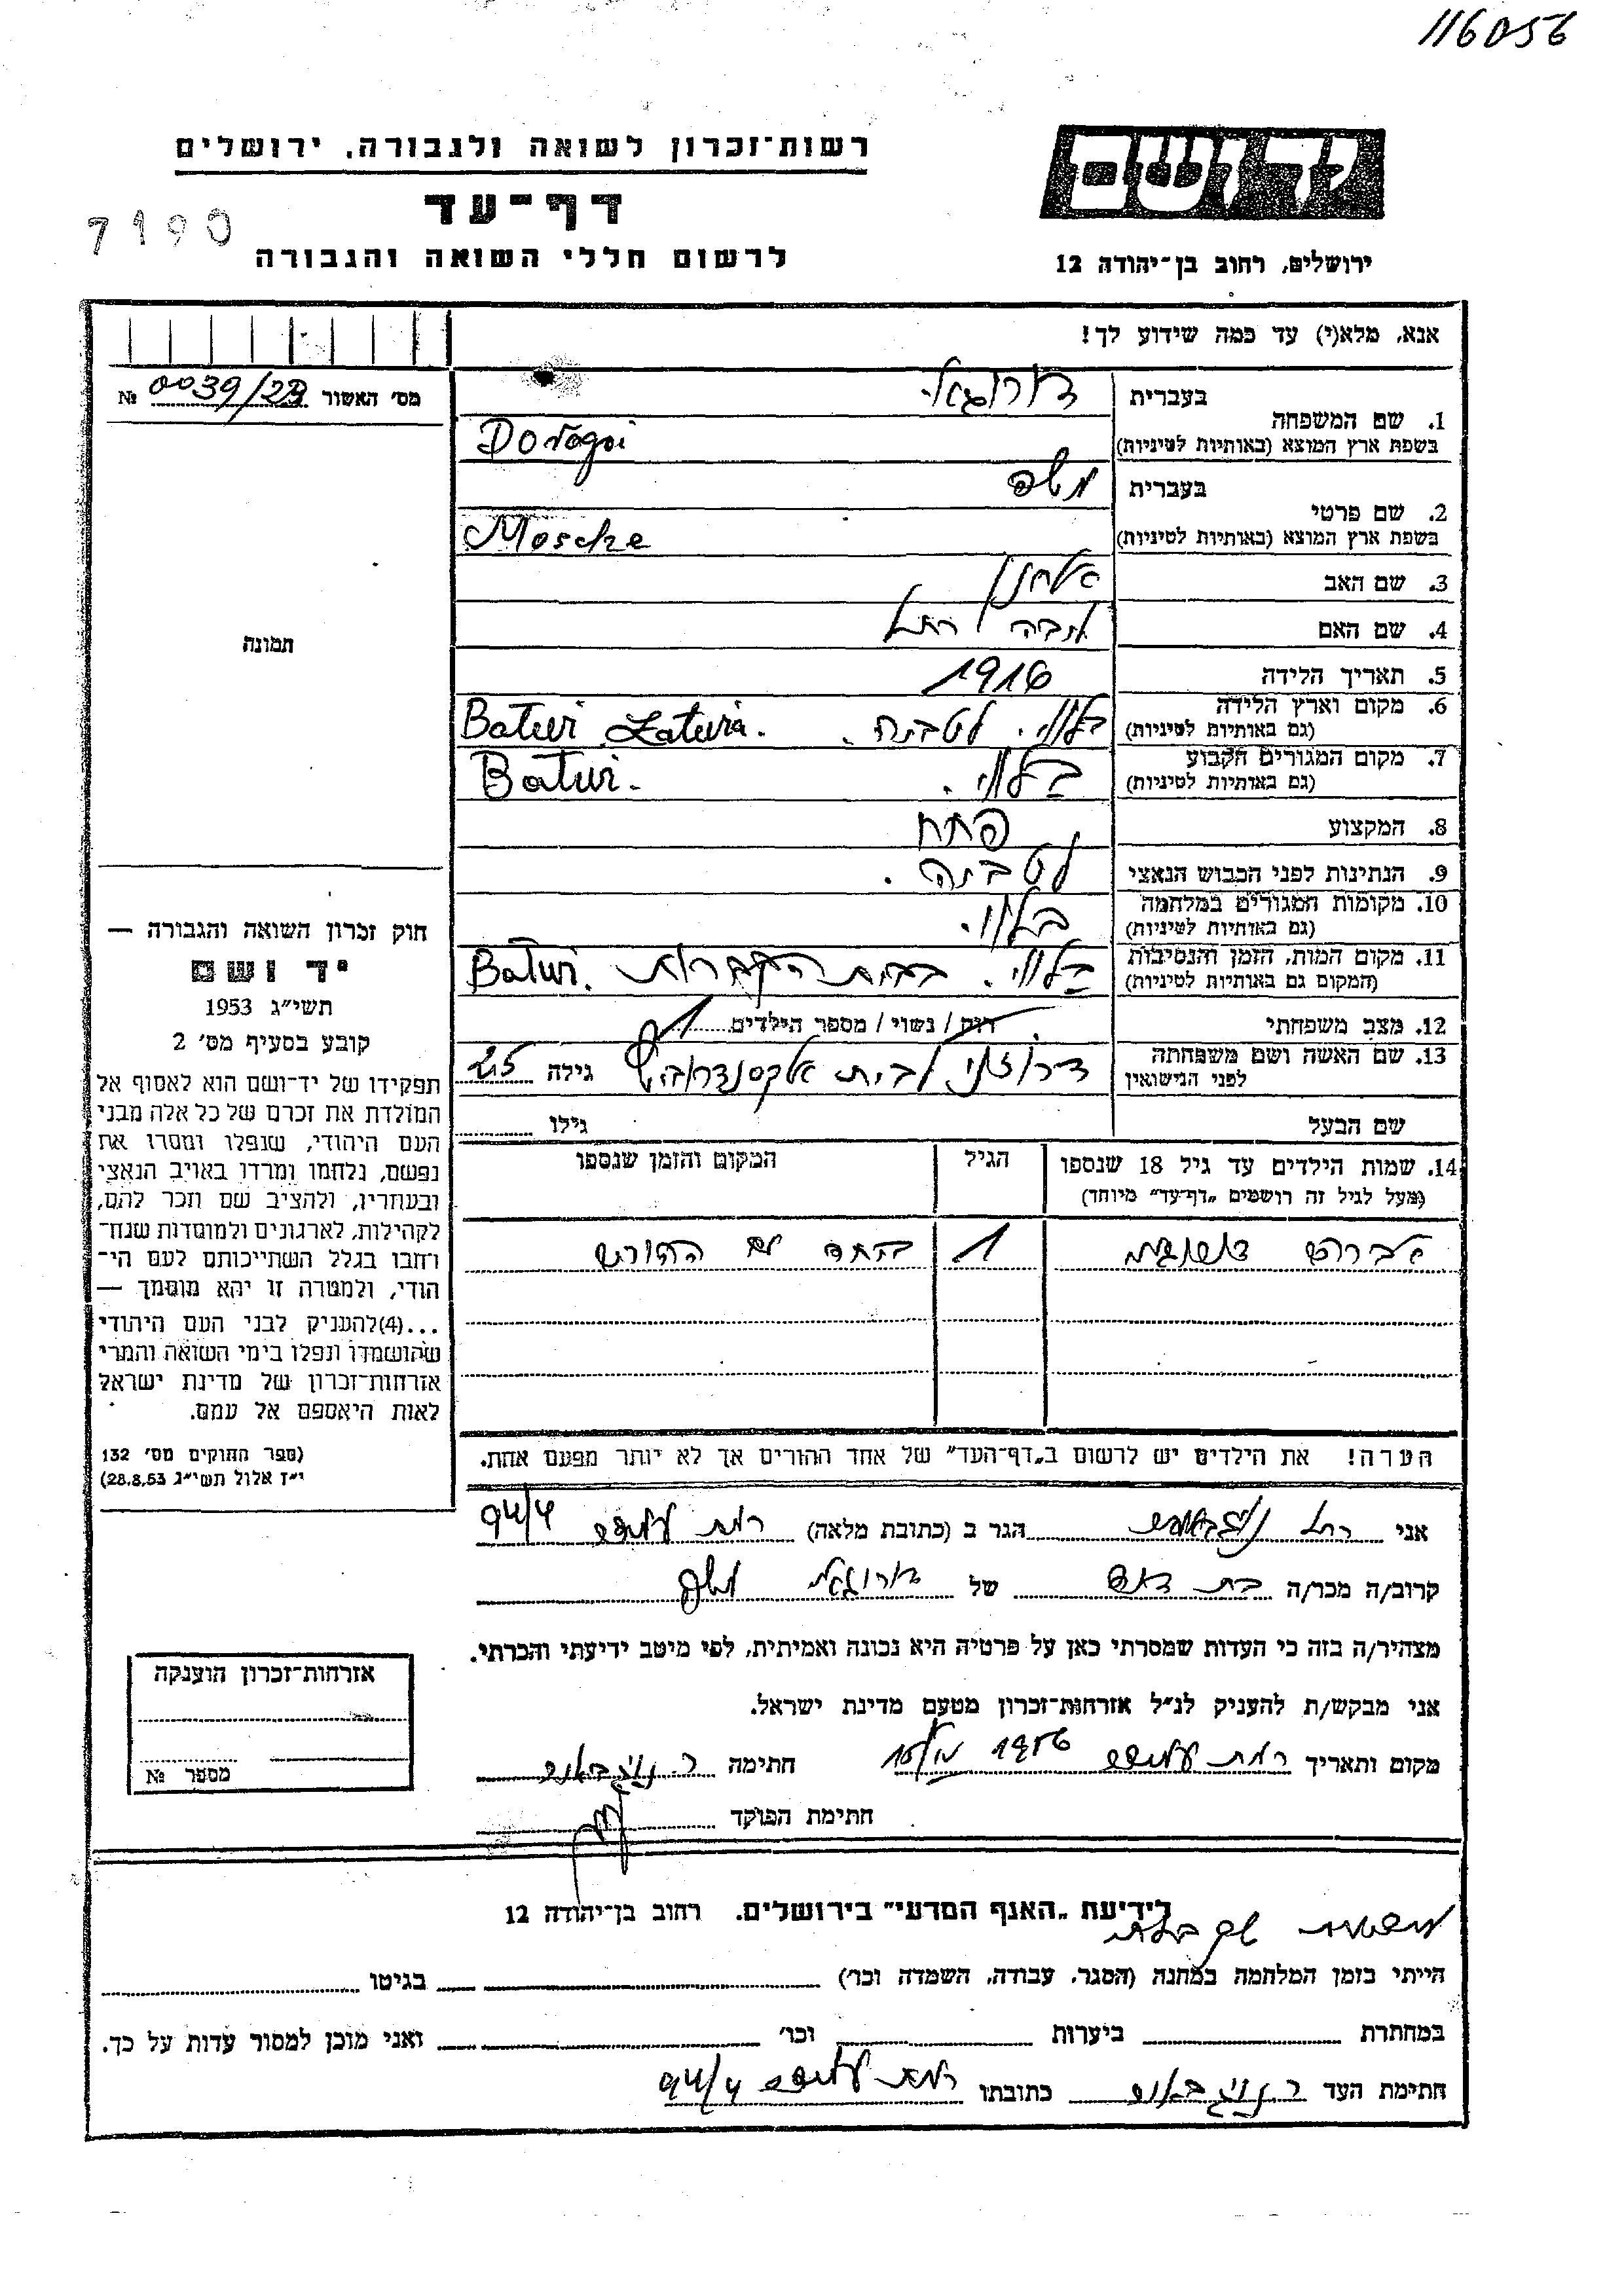 116056
רשות־זכרון לשואה ולגבורה, ירושלים
דף־עד
לרשום חללי השואה והגבורה
7190
יד ושם
ירושלים, רחוב בן־יהודה 12
אנא, מלא(י) עד כמה שידוע לך!
מס׳ האשור № 0039/23
1. שם המשפחה
בעברית
בשפת ארץ המוצא (באותיות לטיניות) Doragoi
2. שם פרטי
בעברית משה
בשפת ארץ המוצא (באותיות לטיניות) Mosche
3. שם האב אלחנן
4. שם האם רחל
5. תאריך הלידה 1916
6. מקום וארץ הלידה
(גם באותיות לטיניות) לטביה. Batwi Latwia.
7. מקום המגורים הקבוע
(גם באותיות לטיניות) Batwi.
8. המקצוע פחח
9. הנתינות לפני הכבוש הנאצי לטביה.
10. מקומות המגורים במלחמה
(גם באותיות לטיניות)
11. מקום המות, הזמן והנסיבות
(המקום גם באותיות לטיניות) בבית הקברות Batwi.
12. מצב משפחתי רווק / נשוי / מספר הילדים 1
13. שם האשה ושם משפחתה
לפני הנישואין לבית גילה 25
שם הבעל גילו
14. שמות הילדים עד גיל 18 שנספו
(מעל לגיל זה רושמים „דף־עד״ מיוחד)
הגיל
המקום והזמן שנספו
1 ביחד עם ההורים
הערה! את הילדים יש לרשום ב„דף־העד״ של אחד ההורים אך לא יותר מפעם אחת.
תמונה
חוק זכרון השואה והגבורה —
יד ושם
תשי״ג 1953
קובע בסעיף מס׳ 2
תפקידו של יד־ושם הוא לאסוף אל
המולדת את זכרם של כל אלה מבני
העם היהודי, שנפלו ומסרו את
נפשם, נלחמו ומרדו באויב הנאצי
ובעוזריו, ולהציב שם וזכר להם,
לקהילות, לארגונים ולמוסדות שנח־
רחבו בגלל השתייכותם לעם הי־
הודי, ולמטרה זו יהא מוסמך —
...(4)להעניק לבני העם היהודי
שהושמדו ונפלו בימי השואה והמרי
אזרחות־זכרון של מדינת ישראל
לאות היאספם אל עמם.
(ספר החוקים מס׳ 132
י״ז אלול תשי״ג 28.8.53)
אני רחל הגר ב (כתובת מלאה) רמת 94/4
קרוב/ה מכר/ה בת דוד של משה
מצהיר/ה בזה כי העדות שמסרתי כאן על פרטיה היא נכונה ואמיתית, לפי מיטב ידיעתי והכרתי.
אני מבקש/ת להעניק לנ״ל אזרחות־זכרון מטעם מדינת ישראל.
מקום ותאריך רמת 1956 חתימה
חתימת הפוקד
אזרחות־זכרון הוענקה
מספר №
לידיעת „האגף המדעי״ בירושלים, רחוב בן־יהודה 12
הייתי בזמן המלחמה במחנה (הסגר, עבודה, השמדה וכו׳) בגיטו
במחתרת ביערות וכו׳ ואני מוכן למסור עדות על כך.
חתימת העד כתובתו רמת 94/4